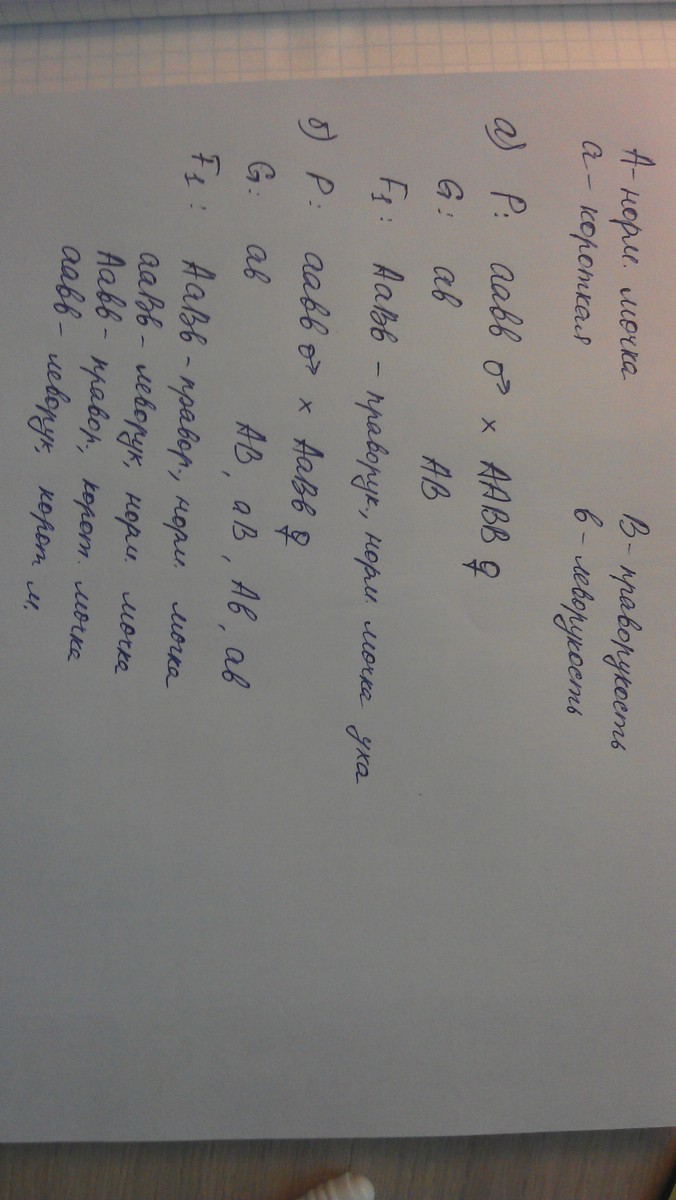 А - норм. мочка В - праворукость
а - короткая в - леворукость
а) P: аавв ♂ × ААВВ ♀
G: ав АВ
F1: АаВв - праворук, норм. мочка уха
б) P: аавв ♂ × АаВв ♀
G: ав АВ, аВ, Ав, ав
F1: АаВв - правор., норм. мочка
ааВв - леворук, норм. мочка
Аавв - правор, корот. мочка
аавв - леворук, корот м.